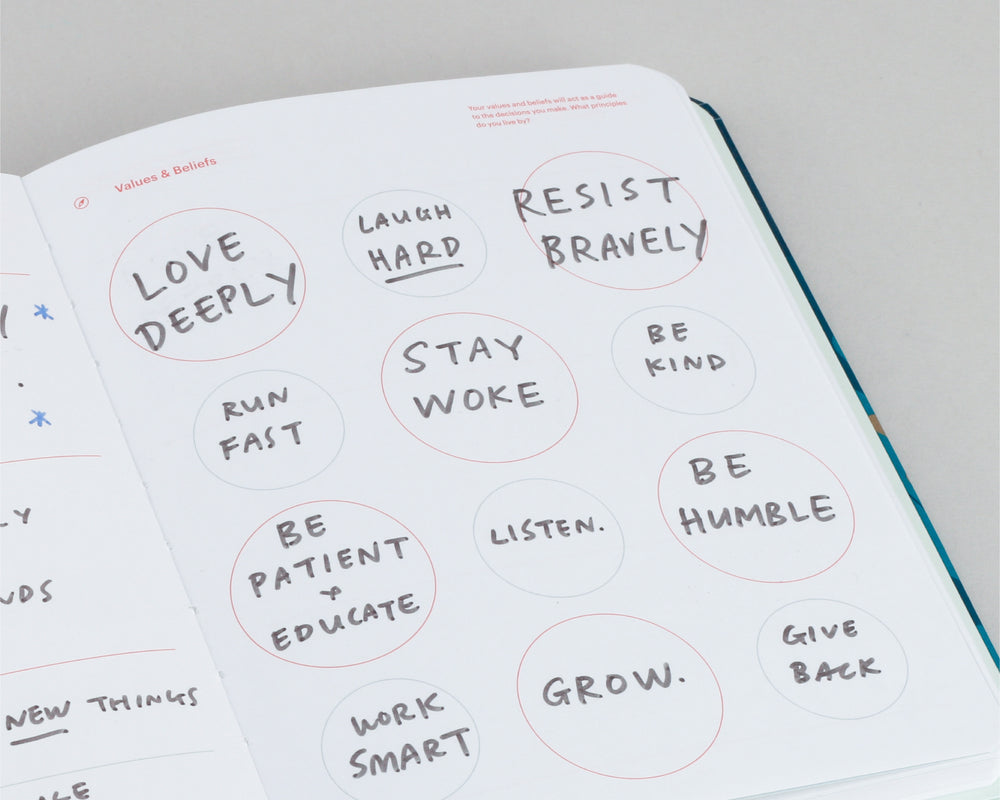 Your values and beliefs will act as a guide
to the decisions you make. What principles
do you live by?
Values & Beliefs
LOVE
DEEPLY
LAUGH
HARD
RESIST
BRAVELY
RUN
FAST
STAY
WOKE
BE
KIND
BE
PATIENT
&
EDUCATE
LISTEN.
BE
HUMBLE
WORK
SMART
GROW.
GIVE
BACK
NEW THINGS